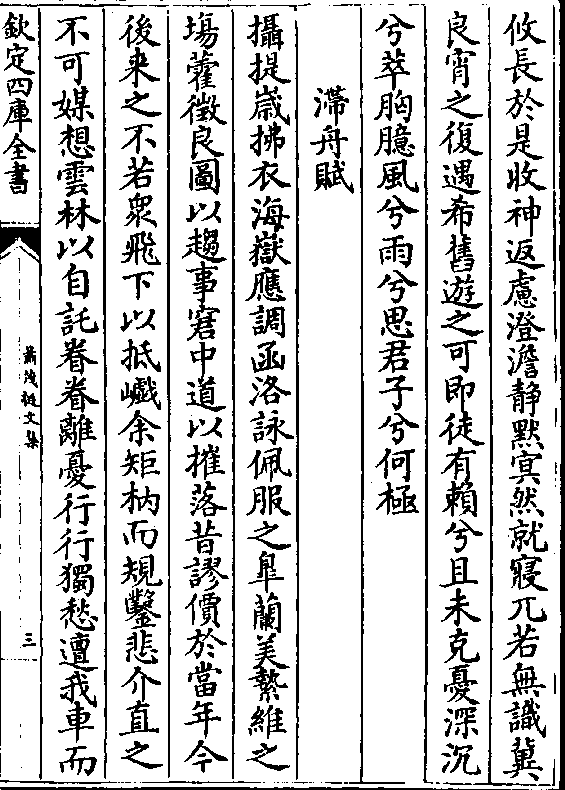 攸長於是收神返慮澄澹静黙㝠然就寢兀若無識冀
良宵之復遇希舊遊之可即徒有賴兮且未克憂深沉
兮萃胸臆風兮雨兮思君子兮何極
滯舟賦
攝提嵗拂衣海嶽應調函洛詠佩服之臯蘭美縶維之
塲藿徵良圖以趨事窘中道以摧落昔謬價於當年今
後来之不若衆飛下以抵巇余矩枘而規鑿悲介直之
不可媒想雲林以自託眷眷離憂行行獨愁邅我車而
欽定四庫全書
蕭茂挺文集
三